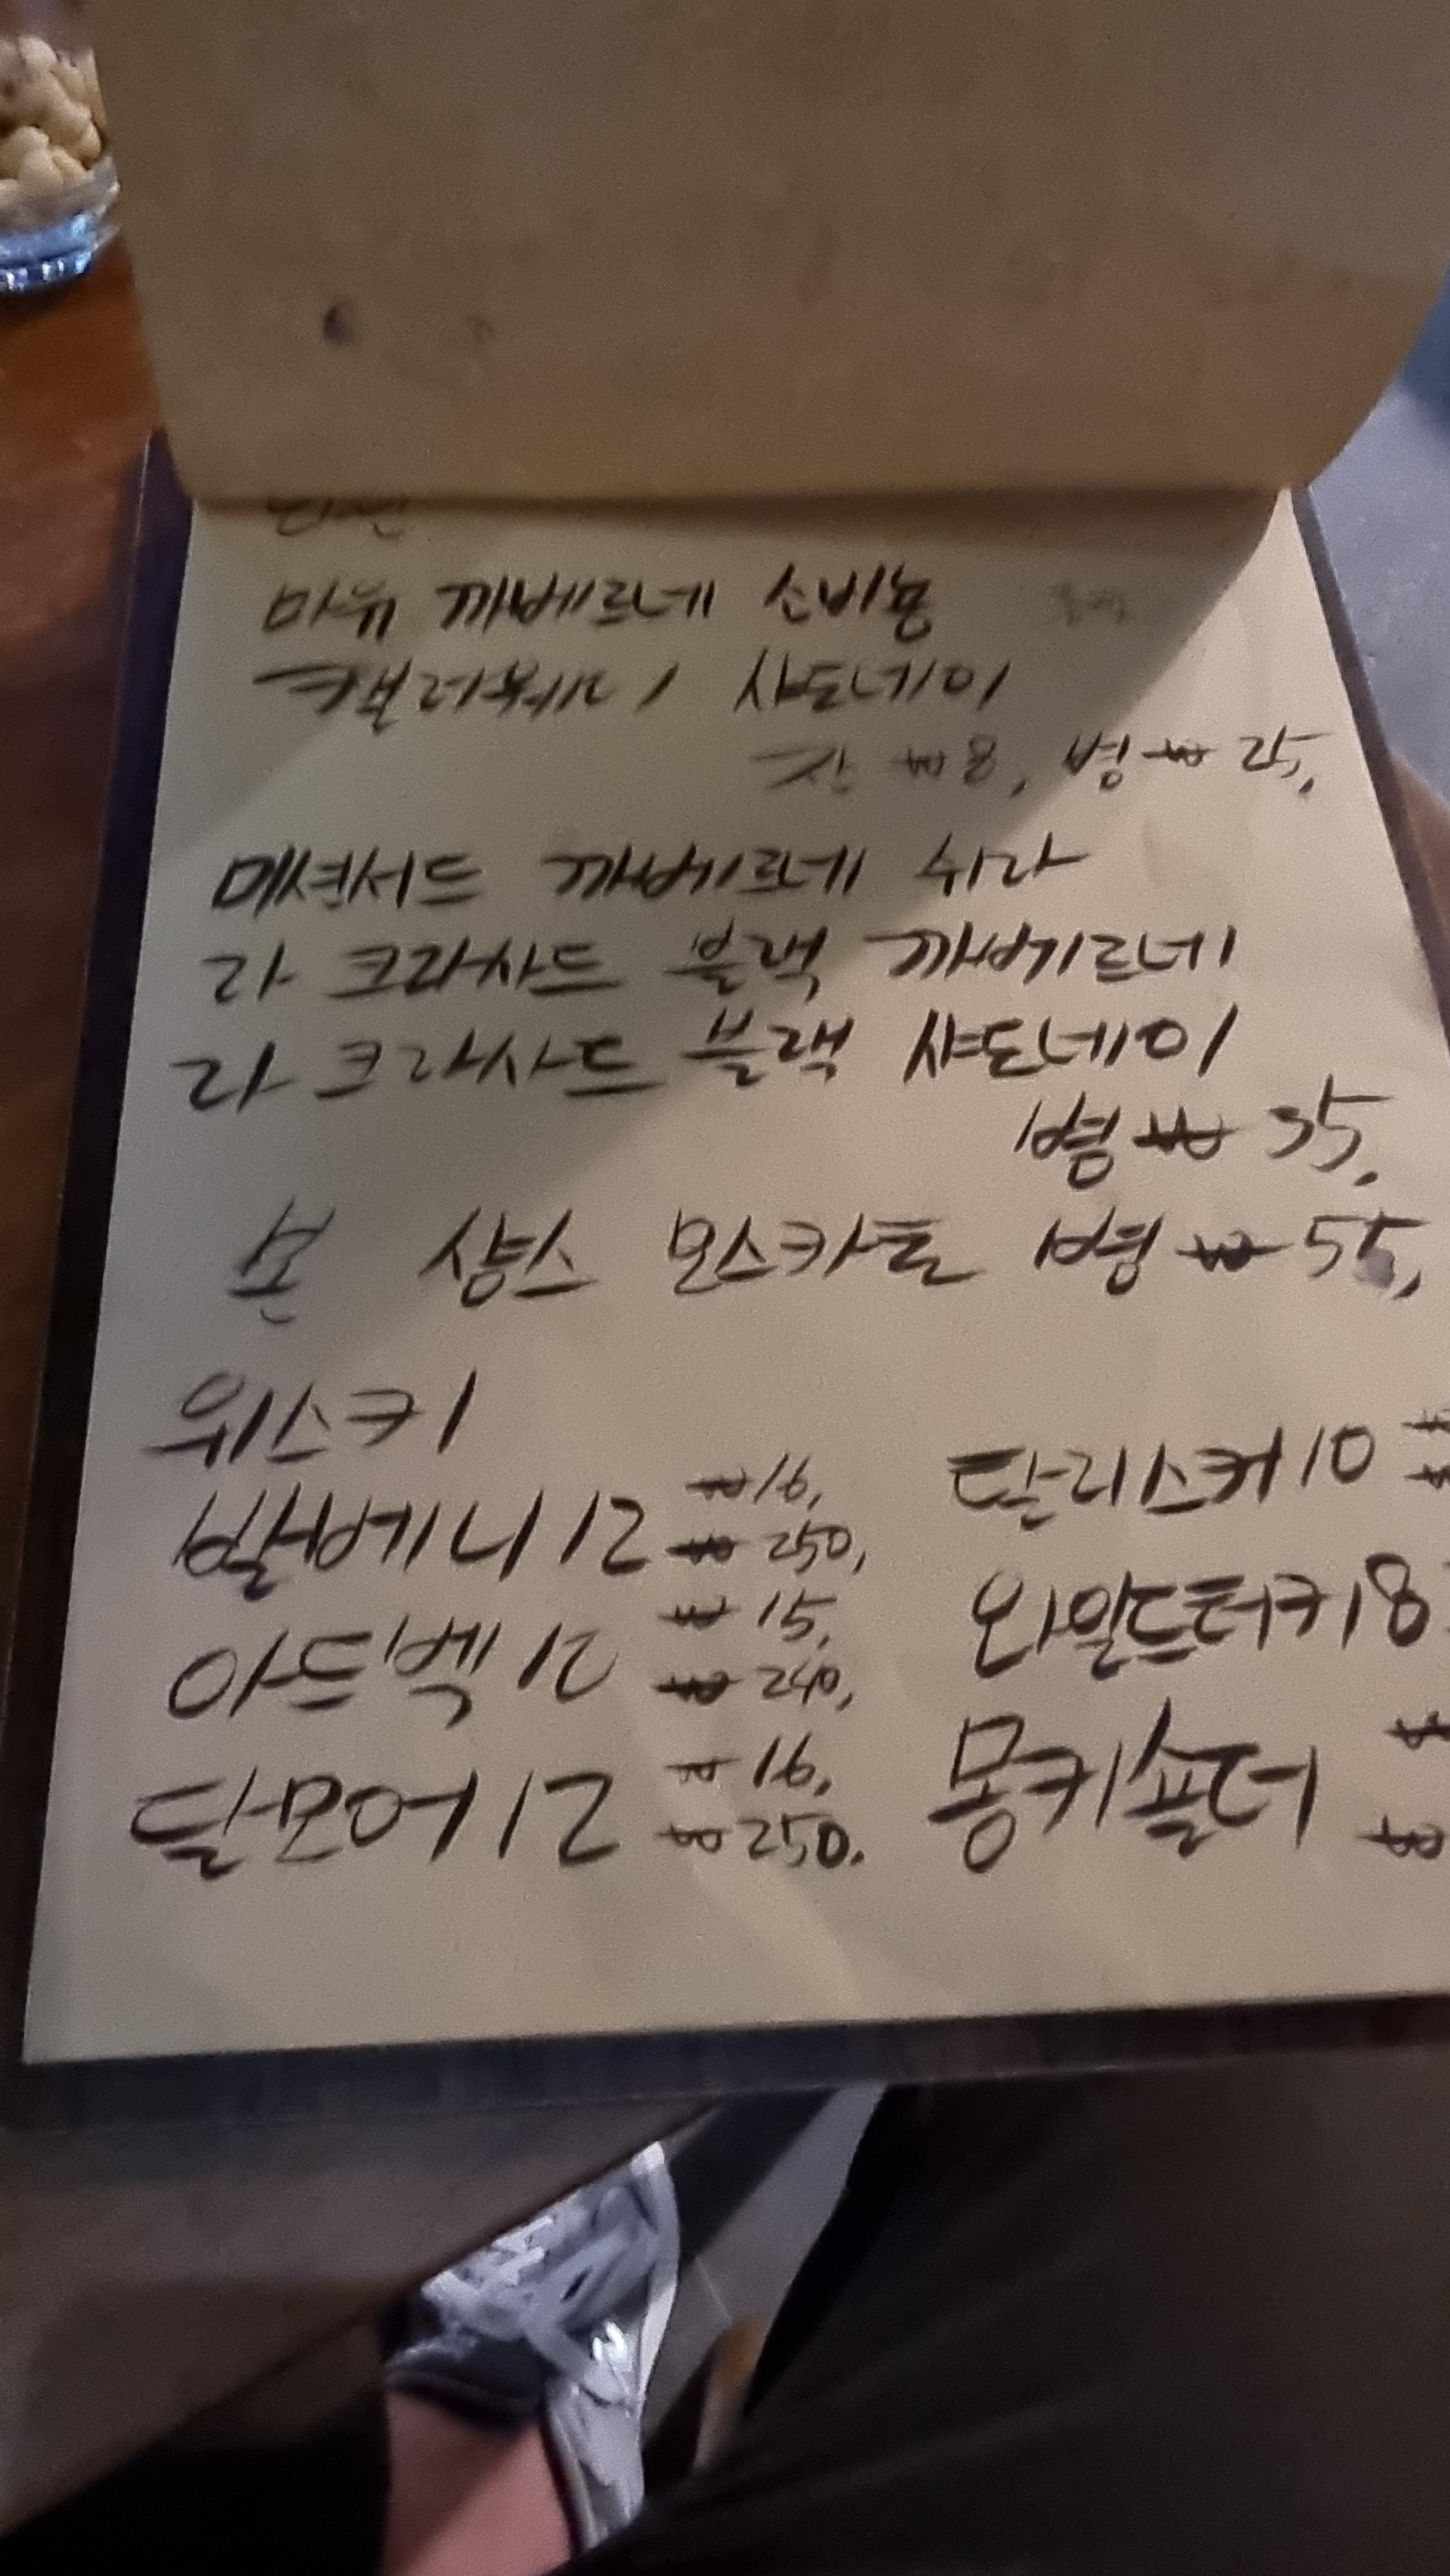 마유 까베르네 소비뇽
캘러웨이 샤도네이
잔 ₩8, 병 ₩25,
메션서드 까베르네 쉬라
라 크라사드 블랙 까베르네
라 크라사드 블랙 샤도네이
병 ₩35,
본 샹스 모스카토 병 ₩55,
위스키
발베니12 ₩16, 탈리스커10 ₩
₩250, ₩
아드벡12 ₩15, 와일드터키8
₩240,
달모어12 ₩16, 몽키숄더 ₩
₩250. ₩